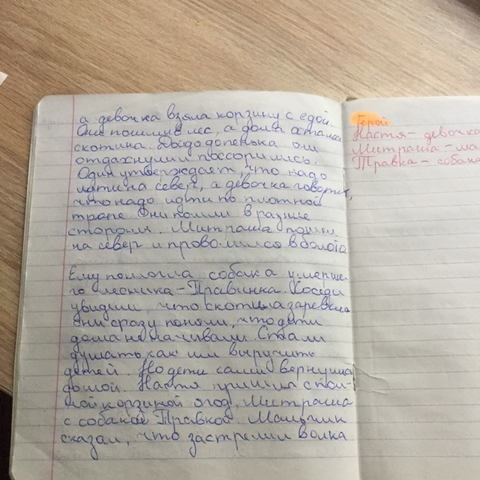 а девочка взяла корзину с едой.
Они пошли в лес, а дома осталась
скотина. Дойдо до пенька они
отдахнули и поссорились.
Один утверждает, что надо
идти на север, а девочка говорит,
что надо идти по плотной
трапе они пошли в разные
стороны. Митраша пошёл
на север и провалился в болото
Ему помогла собака умерше-
го лесника - Травинка. Соседи
увидили, что скотина заревела
они сразу поняли, что дети
дома не начивали. Стали
думать, как им выручить
детей. Но дети сами вернулись
домой. Настя пришла с пол-
ной корзиной ягод, Митраша
с собакой Травкой. Мальчик
сказал, что застрелил волка
Герои
Настя - девочка
Митраша - ма
Травка - собака